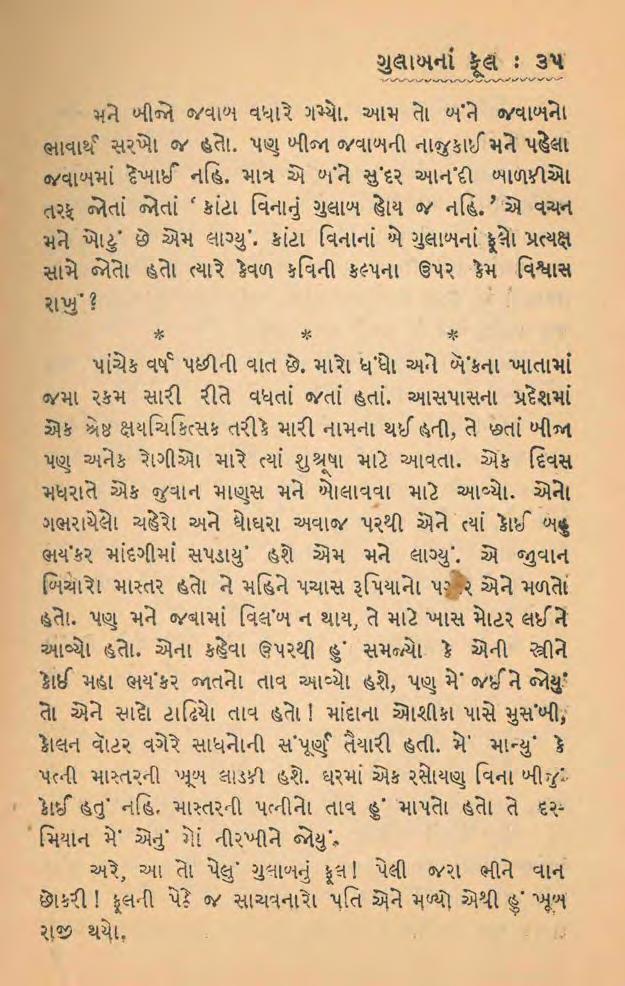 ગુલાબનાં ફૂલ : ૩૫
મને બીજો જવાબ વધારે ગમ્યો. આમ તો બંને જવાબનો
ભાવાર્થ સરખો જ હતો. પણ બીજા જવાબની નાજુકાઈ મને પહેલા
જવાબમાં દેખાઈ નહિ. માત્ર એ બંને સુંદર આનંદી બાળકીઓ
તરફ જોતાં જોતાં ‘ કાંટા વિનાનું ગુલાબ હોય જ નહિ.’ એ વચન
મને ખોટું છે એમ લાગ્યું. કાંટા વિનાનાં બે ગુલાબનાં ફૂલો પ્રત્યક્ષ
સામે જોતો હતો ત્યારે કેવળ કવિની કલ્પના ઉપર કેમ વિશ્વાસ
રાખું ?
* * *
પાંચેક વર્ષ પછીની વાત છે. મારો ધંધો અને બૅંકના ખાતામાં
જમા રકમ સારી રીતે વધતાં જતાં હતાં. આસપાસના પ્રદેશમાં
એક શ્રેષ્ઠ ક્ષયચિકિત્સક તરીકે મારી નામના થઈ હતી, તે છતાં બીજા
પણ અનેક રોગીઓ મારે ત્યાં શુશ્રૂષા માટે આવતા. એક દિવસ
મધરાતે એક જુવાન માણુસ મને બોલાવવા માટે આવ્યો. એનો
ગભરાયેલો ચહેરો અને ઘોઘરા અવાજ પરથી એને ત્યાં કોઈ બહુ
ભયંકર માંદગીમાં સપડાયું હશે એમ મને લાગ્યું. એ જુવાન
બિચારો માસ્તર હતો ને મહિને પચાસ રૂપિયાનો એને મળતો
હતો. પણ મને જવામાં વિલંબ ન થાય, તે માટે ખાસ મોટર લઈને
આવ્યો હતો. એના કહેવા ઉપરથી હું સમજ્યો કે એની સ્ત્રીને
કોઈ મહા ભયંકર જાતનો તાવ આવ્યો હશે, પણ મેં જઈને જોયું
તો એને સાદો ટાઢિયો તાવ હતો ! માંદાના ઓશીકા પાસે મુસંબી,
કોલન વૉટર વગેરે સાધનોની સંપૂર્ણ તૈયારી હતી. મેં માન્યું કે
પત્ની માસ્તરની ખૂબ લાડકી હશે. ઘરમાં એક રસોયણ વિના બીજું
કોઈ હતું નહિ. માસ્તરની પત્નીનો તાવ હું માપતો હતો તે દર-
મિયાન મેં એનું મોં નીરખીને જોયું.
અરે, આ તો પેલું ગુલાબનું ફૂલ ! પેલી જરા ભીને વાન
છોકરી ! ફૂલની પેઠે જ સાચવનારો પતિ એને મળ્યો એથી હું ખૂબ
રાજી થયો.